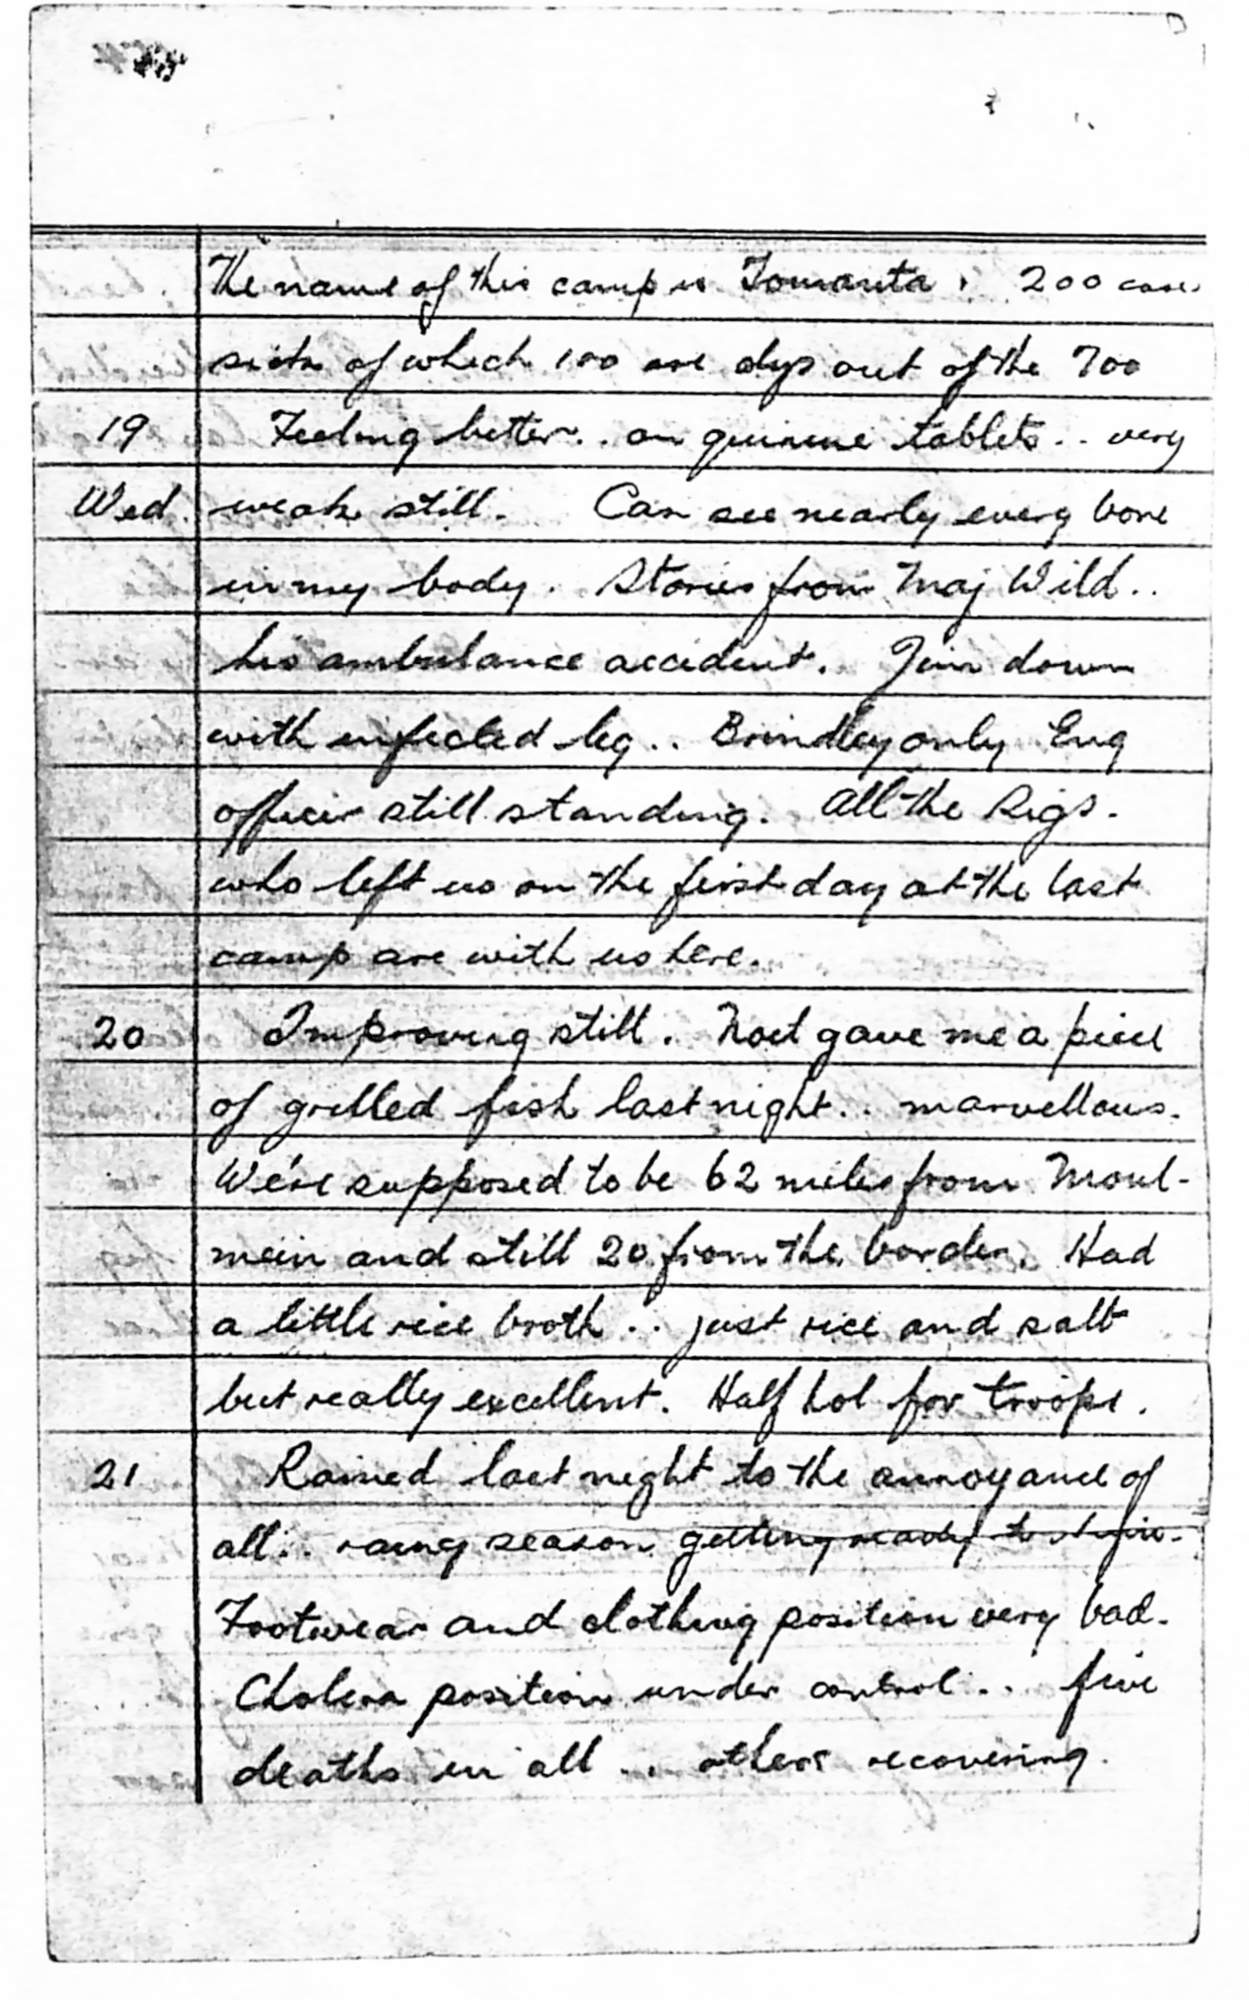 The name of this camp is Tomanta. 200 cases
sick of which 100 are dys out of the 700
19 Feeling better.. on quinine tablets.. very
Wed. weak still. Can see nearly every bone
in my body. Stories from Maj Wild..
his ambulance accident. Jim down
with infected leg.. Brindley only Eng
officer still standing. All the Rigs.
who left us on the first day at the last
camp are with us here.
20 Improving still. Noel gave me a piece
of grilled fish last night.. marvellous.
We're supposed to be 62 miles from Moul-
mein and still 20 from the border. Had
a little rice broth.. just rice and salt
but really excellent. Half hol for troops.
21 Rained last night to the annoyance of
all.. rainy season getting ready to
Footwear and clothing position very bad.
Cholera position under control.. five
deaths in all.. others recovering.